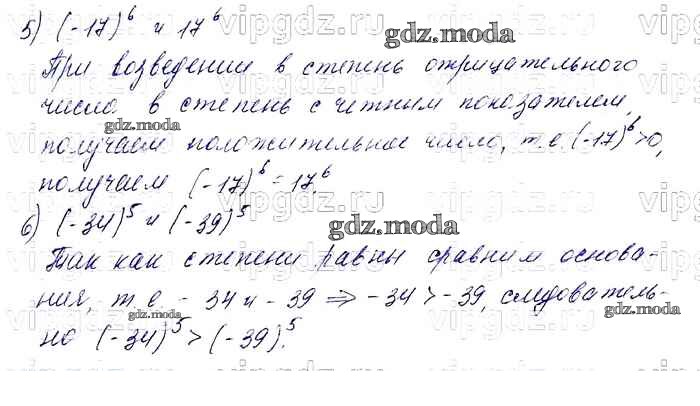 5) (-17)^6 и 17^6
При возведении в степень отрицательного
число в степень с четным показателем,
получаем положительное число, т.е. (-17)^6>0,
получаем (-17)^6 = 17^6.
6) (-34)^5 и (-39)^5
Так как степени равны сравним основа-
ние, т.е. -34 и -39 ⇒ -34 > -39, следователь-
но (-34)^5 > (-39)^5.
gdz.moda
gdz.moda
gdz.moda
gdz.moda
gdz.moda
gdz.moda